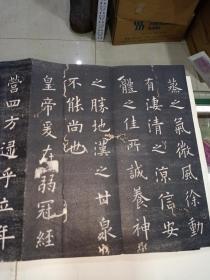 蒸之氣微風徐動
有淒清之涼信安
體之佳所誠養神
之勝地漢之甘泉
不能尚也
皇帝爰在弱冠經
營四方逮乎立年